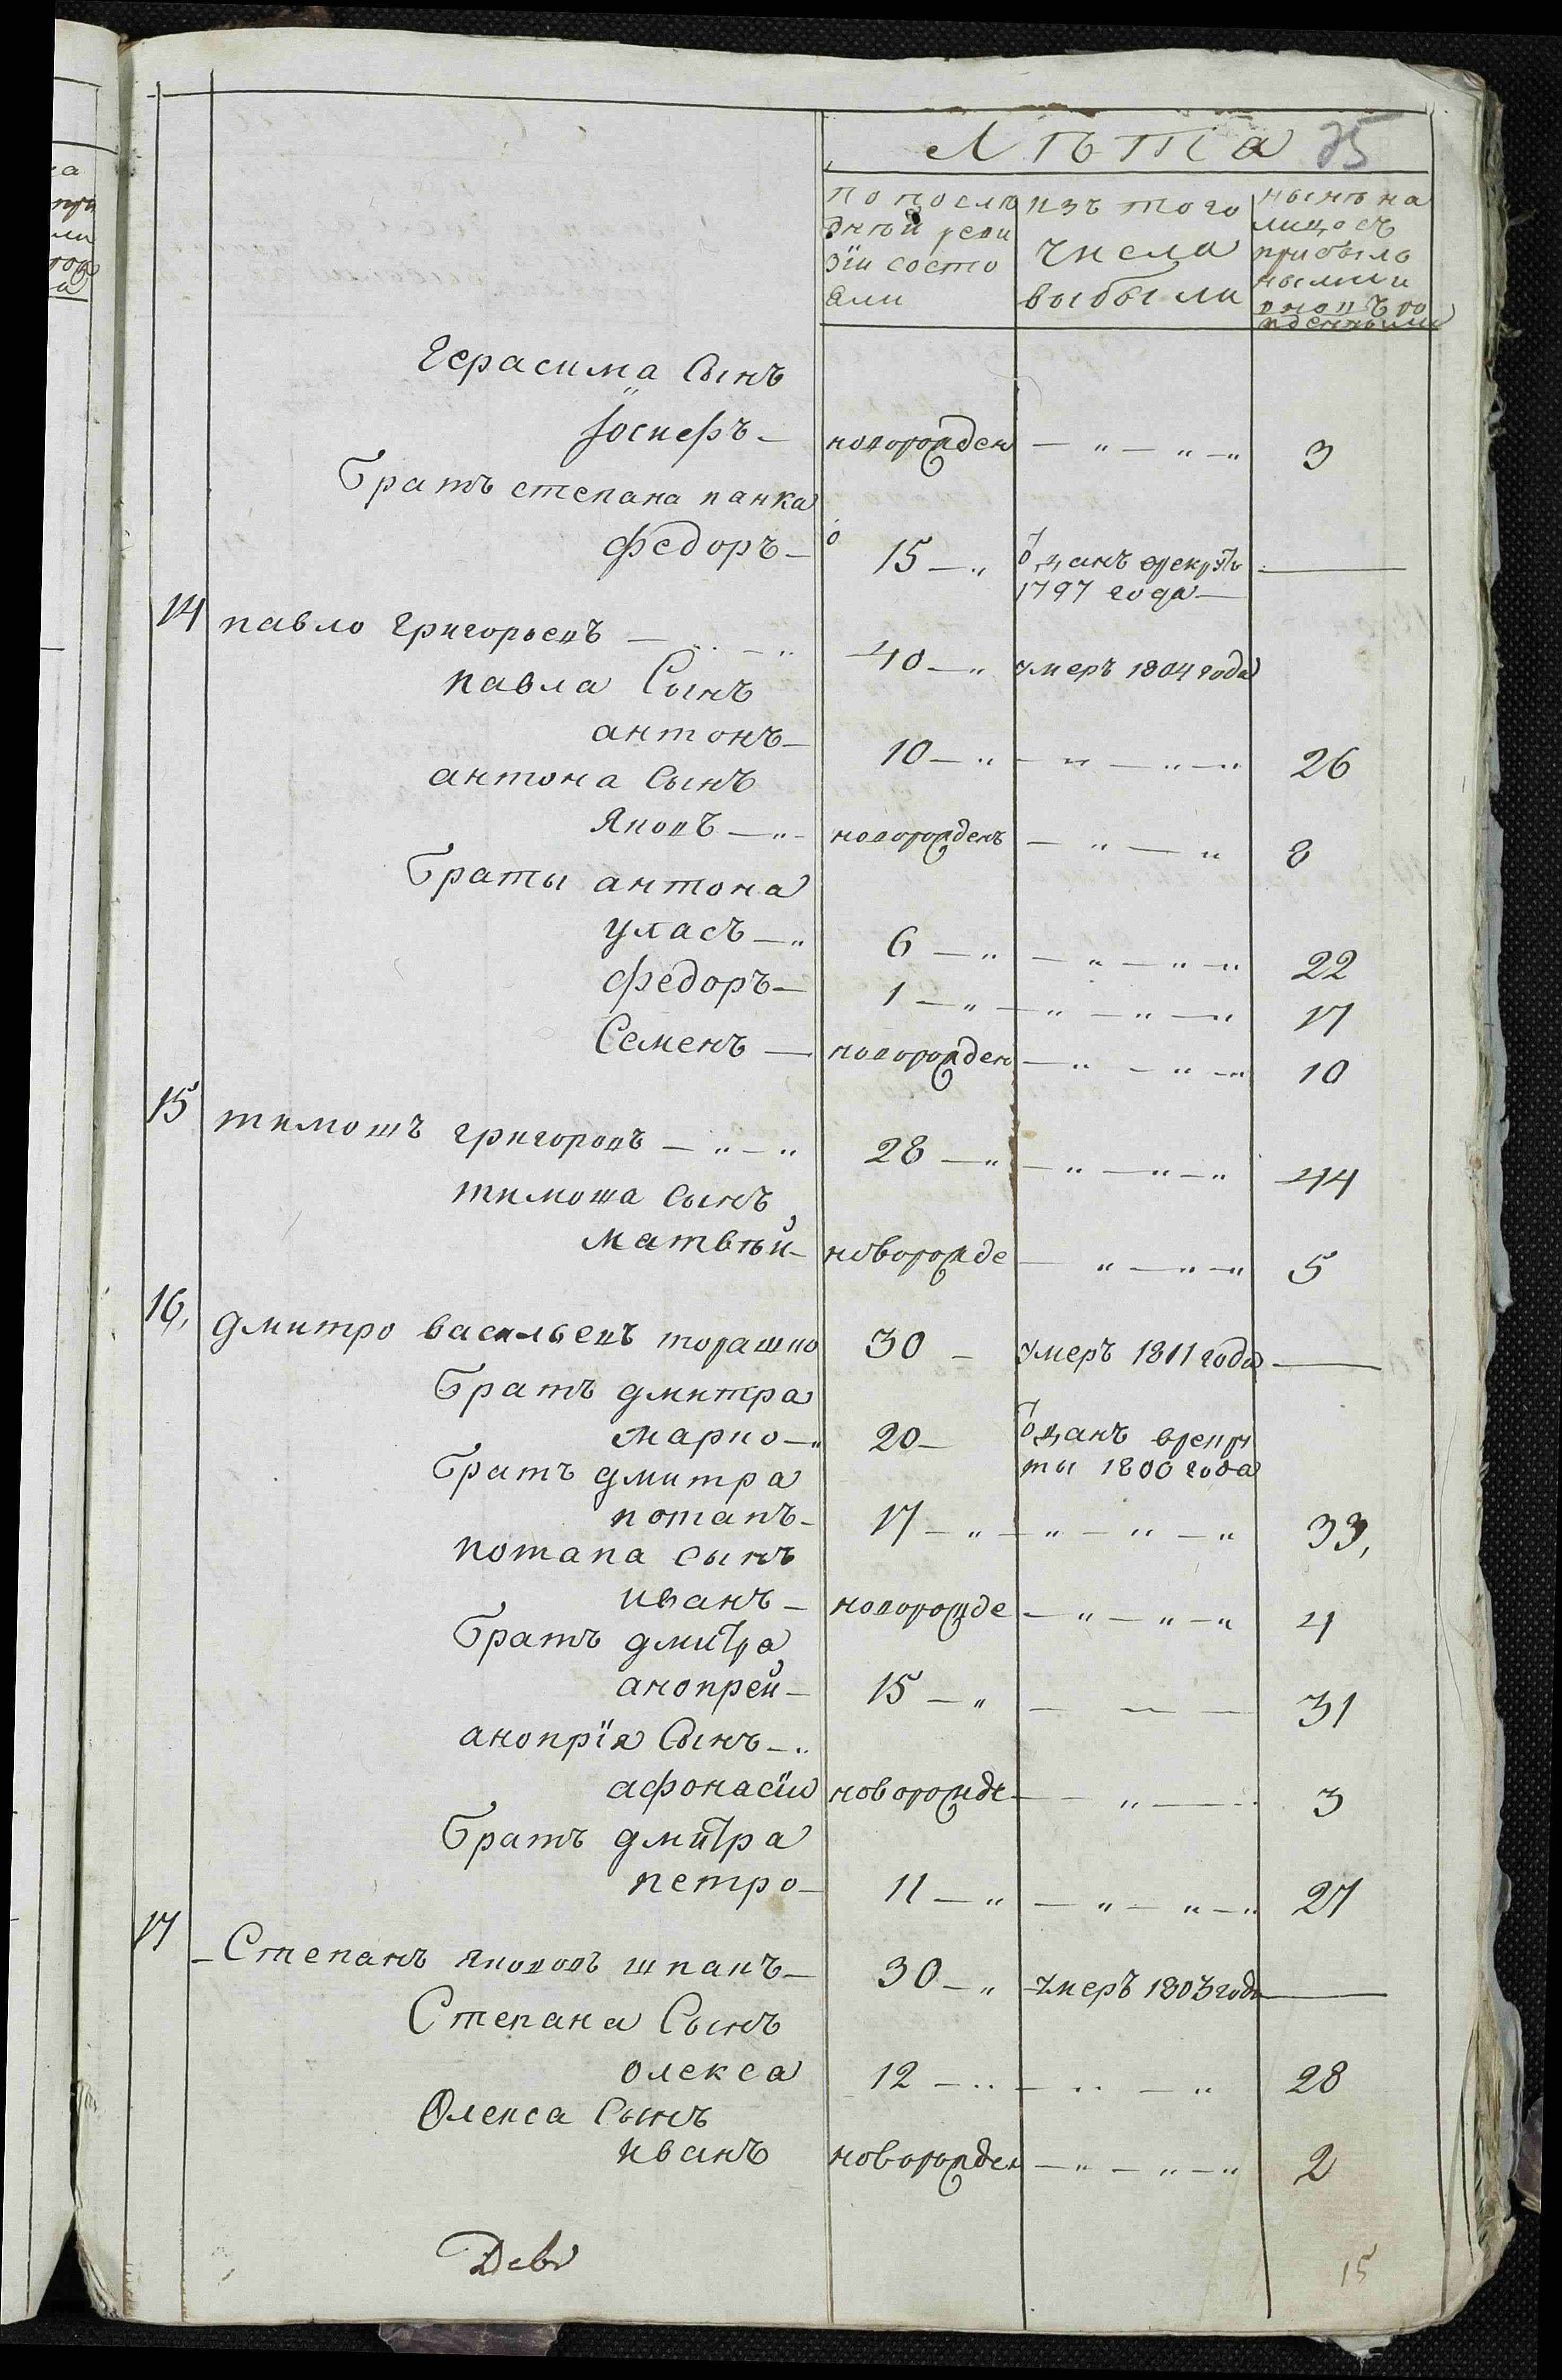 Лѣта 35
по послѣ
дней реви
зіи состо
яли
изъ того
числа
выбыли
нынѣ на
лицо съ
прибыль
ными и
вновь ро
жденными
Герасима Сынъ
Іосифъ — новорожден — „ — „ — „ 3
Братъ степана панка
федоръ — 15 — „ ѿданъ врекруты
1797 года —
14 павло григорьевъ — „ — „ 40 — „ умеръ 1804 года
павла Сынъ
антонъ — 10 — „ — „ — „ — „ 26
антона Сынъ
Яковъ — „ новорожденъ — „ — „ 8
Браты антона
уласъ — „ 6 — „ — „ — „ — „ 22
федоръ — 1 — „ — „ — „ — „ 17
Семенъ — новорожден — „ — „ — „ 10
15 тимошъ григоровъ — „ — „ 28 — „ — „ — „ — „ 44
тимоша Сынъ
матвѣй — новорожде — „ — „ — „ 5
16, дмитро васильевъ торашко 30 — умеръ 1811 года —
Братъ дмитра
марко — „ 20 — ѿданъ врекру
ты 1800 года
Братъ дмитра
потапъ — 17 — „ — „ — „ — „ 33,
потапа сынъ
иванъ — новорожде — „ — „ — „ 4
Братъ дмитра
анопрей — 15 — „ — — — 31
анопрія Сынъ — „
афонасій новорожде — „ — 3
Братъ дмитра
петро — 11 — „ — „ — „ — „ 27
17 Степанъ якововъ шпакъ — 30 — „ умеръ 1803 года —
Степана Сынъ
олекса 12 — „ — „ — „ 28
Олекса Сынъ
иванъ новорожден — „ — „ — „ 2
15